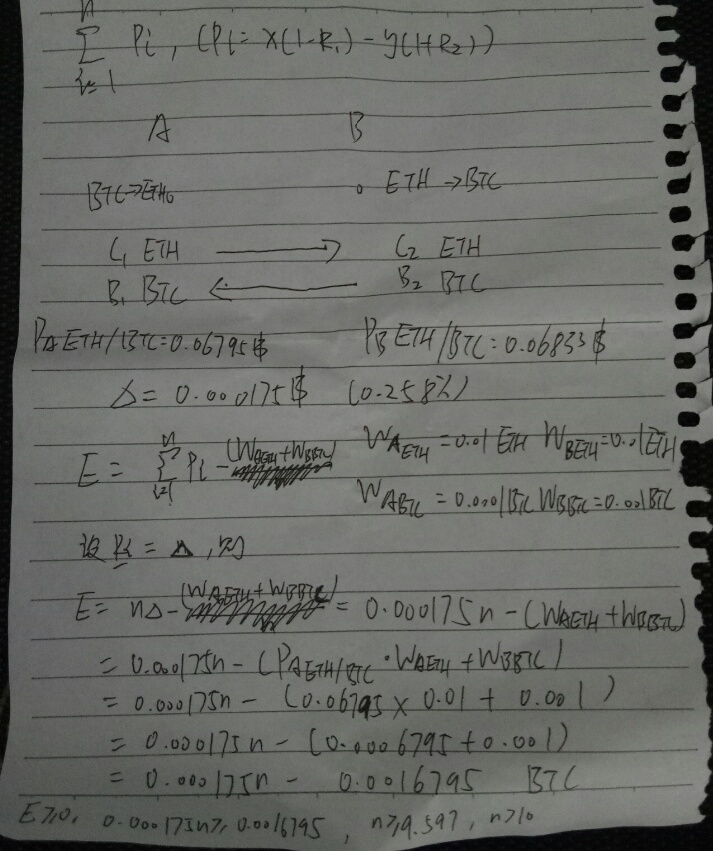 n
Σ Pi , (Pi = x(1-R₁) - y(1+R₂))
i=1
A B
BTC→ETH。 。 ETH →BTC
C₁ ETH ⟶ C₂ ETH
B₁ BTC ⟵ B₂ BTC
PA ETH/BTC=0.06795฿ PB ETH/BTC=0.06833฿
Δ= 0.000175฿ (0.258%)
E = Σ Pi - (WAETH+WBBTC) WAETH =0.01 ETH WBETH=0.01ETH
WABTC = 0.0001BTC WBBTC=0.001BTC
设 Pi = Δ , 则
E= nΔ-(WAETH + WBBTC) = 0.000175n - (WAETH+WBBTC)
= 0.000175n - (PAETH/BTC · WAETH + WBBTC)
= 0.000175n - (0.06795 × 0.01 + 0.001)
= 0.000175n - (0.0006795+0.001)
= 0.000175n - 0.0016795 BTC
E≥0, 0.000175n≥0.0016795 , n≥9.597 , n≥10